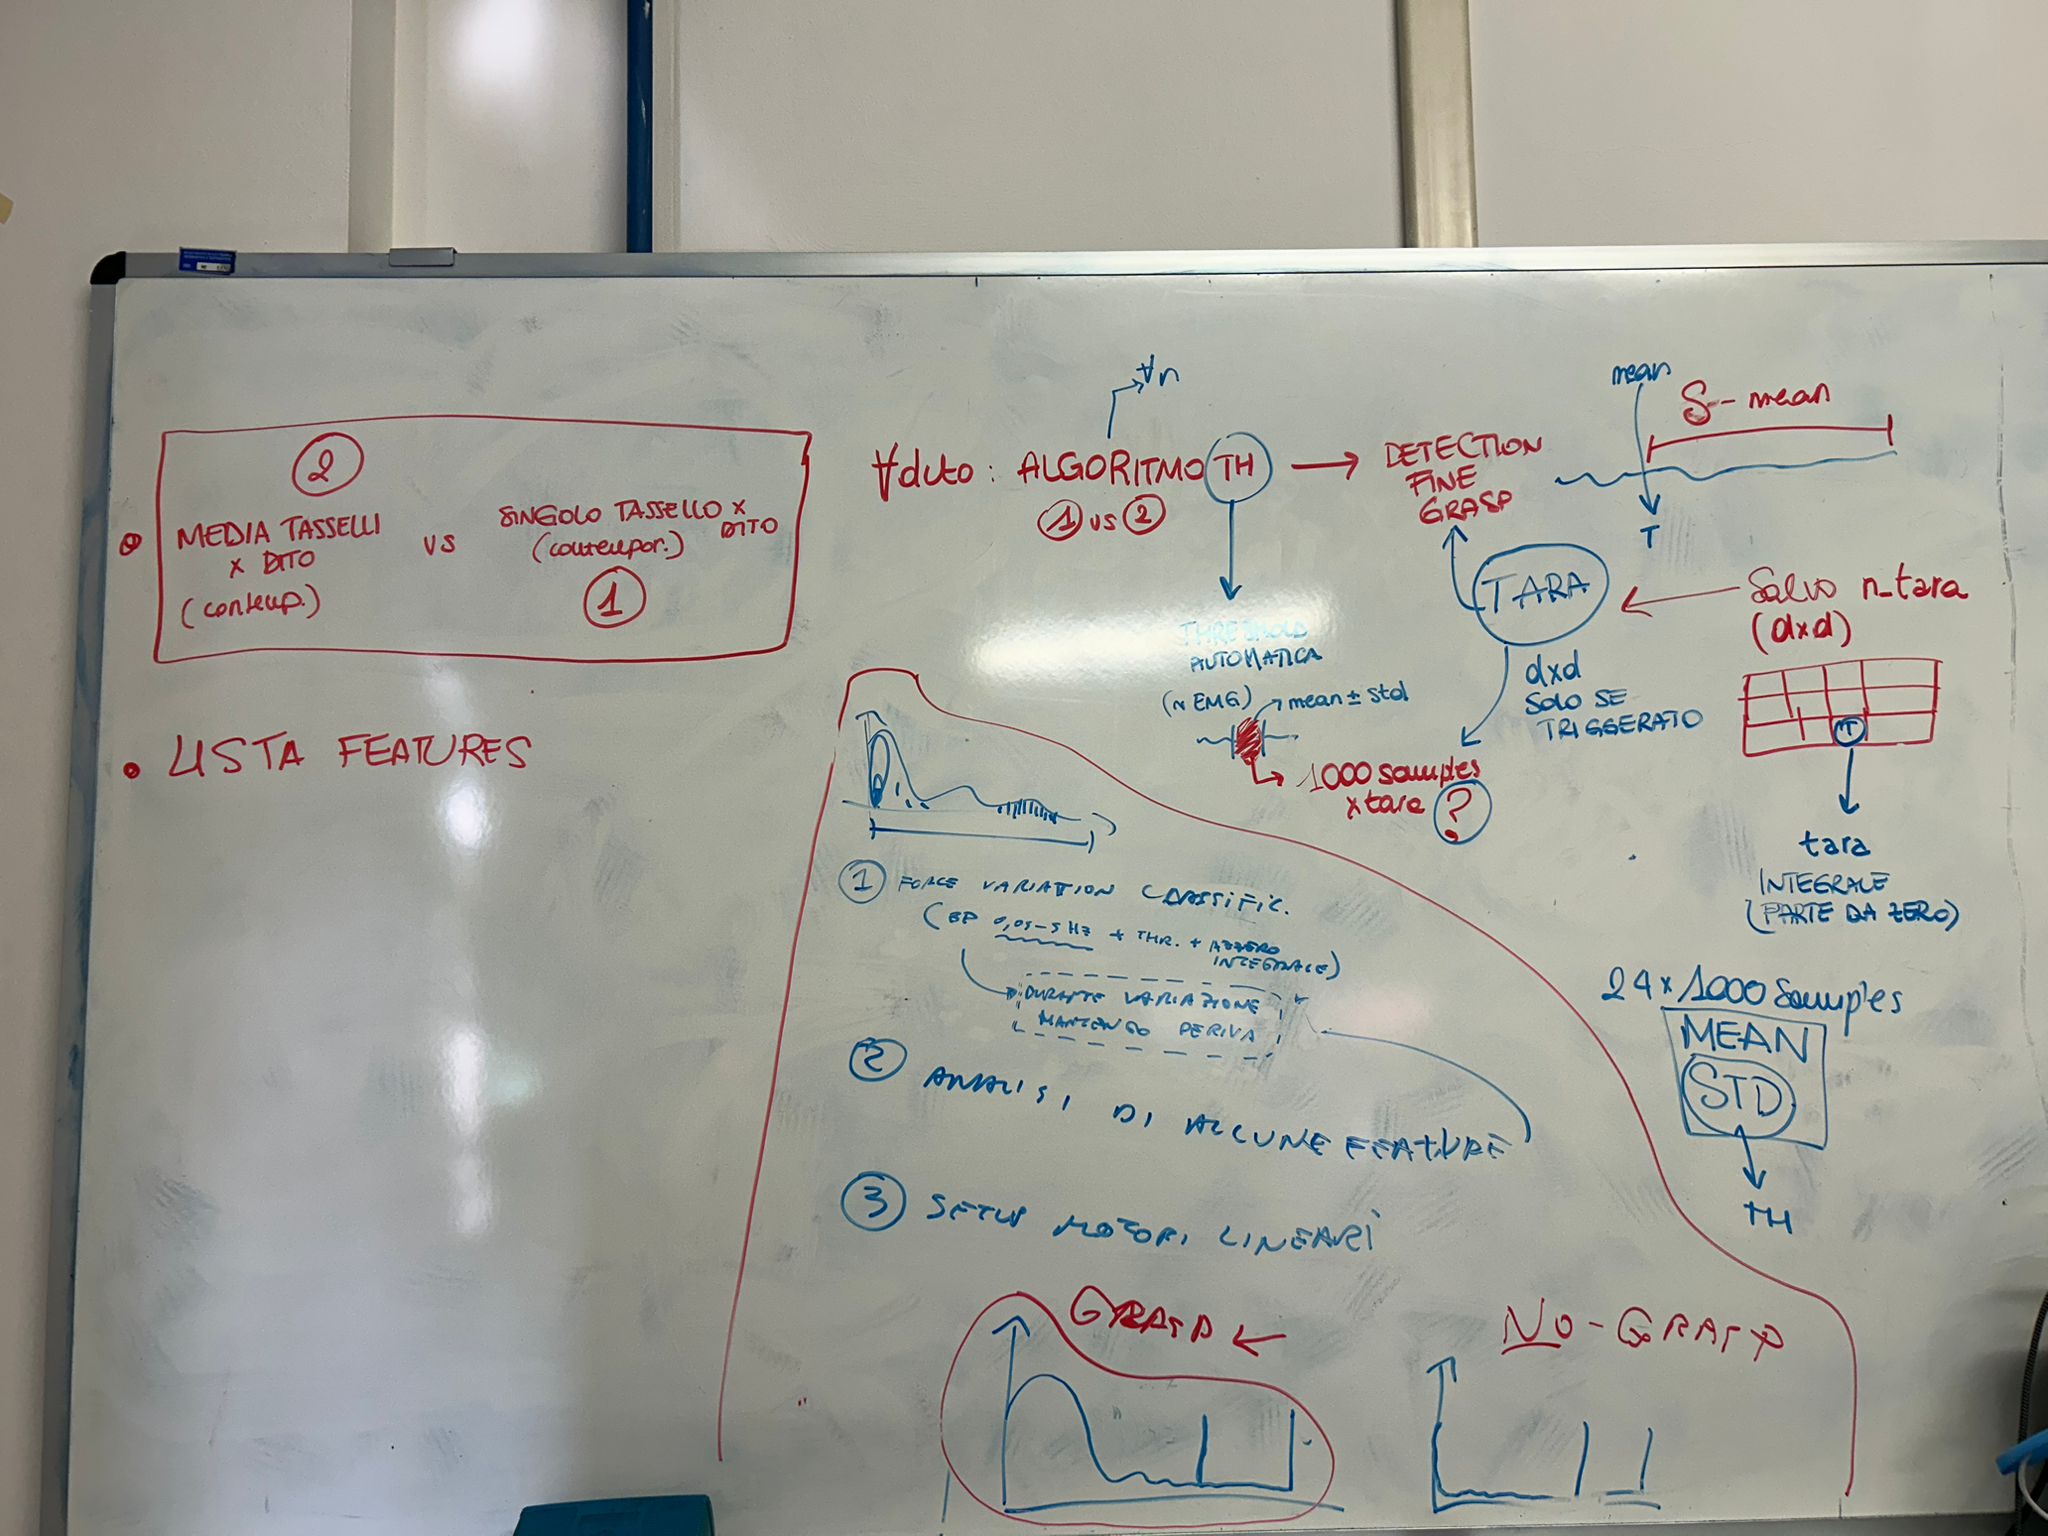 ②
MEDIA TASSELLI
x DITO
(contemp.)
vs
SINGOLO TASSELLO x
DITO
(contempor.)
①
LISTA FEATURES
∀n
∀dito: ALGORITMO TH → DETECTION
FINE
GRASP
① vs ②
THRESHOLD
AUTOMATICA
(~ EMG)
mean ± std
1000 samples
x tara ?
mean
S - mean
T
TARA
dxd
SOLO SE
TRIGGERATO
Salvo n_tara
(dxd)
T
tara
INTEGRALE
(PARTE DA ZERO)
24 x 1000 samples
MEAN
STD
TH
① FORCE VARIATION CLASSIFIC.
(BP 0,05-5 Hz + THR. + AZZERO
INTEGRALE)
DURANTE VARIAZIONE
MANTENGO DERIVA
② ANALISI DI ALCUNE FEATURE
③ SETUP MOTORI LINEARI
GRASP ←
NO-GRASP